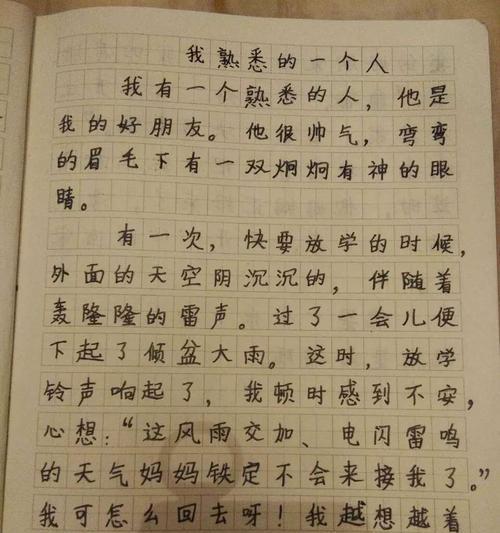 我熟悉的一个人
我有一个熟悉的人，他是
我的好朋友。他很帅气，弯弯
的眉毛下有一双炯炯有神的眼
睛。
有一次，快要放学的时候，
外面的天空阴沉沉的，伴随着
轰隆隆的雷声。过了一会儿便
下起了倾盆大雨。这时，放学
铃声响起了，我顿时感到不安，
心想：“这风雨交加、电闪雷鸣
的天气妈妈铁定不会来接我了。”
我可怎么回去呀！我越想越着